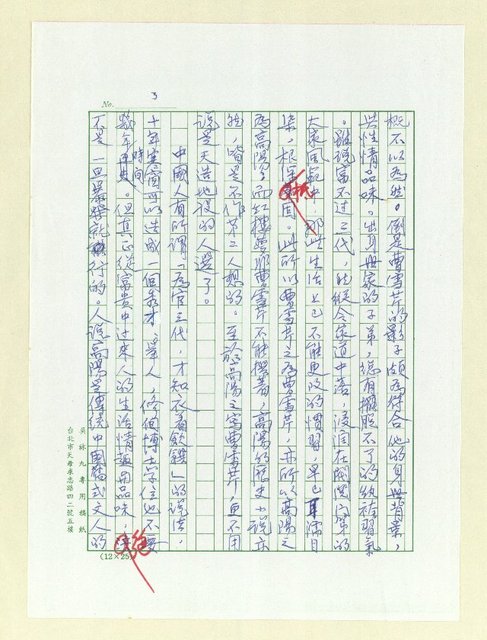 No. 3
概不以為然。倒是曹雪芹的影子頗為符合他的身世背景，
與性情品味。出身世家的子弟，總有擺脫不了的紈袴習氣
。雖說富不過三代，能縱令家道中落，浸潤在閥閱門第的
大家風範中，那些生活上已不能更改的慣習，早已耳濡目
染，根深柢固。此所以曹雪芹之為曹雪芹，亦所以高陽之
為高陽，而紅樓夢非曹雪芹不能撰著，高陽的歷史小說亦
然，皆是不作第二人想的。至於高陽之寫曹雪芹，更不用
說是天造地設的人選了。
中國人有所謂「為官三代，才知衣着飲饌」的說法，
十年寒窗可以造成一個秀才、舉人，修個博士學位也不要
數年時間，但真正從富貴中過來人的生活情趣與品味，絕
不是一旦暴發就行的。人說高陽是傳統中國舊式文人的
專用稿紙
台北市天母東忠路四二號五樓
(12×25)